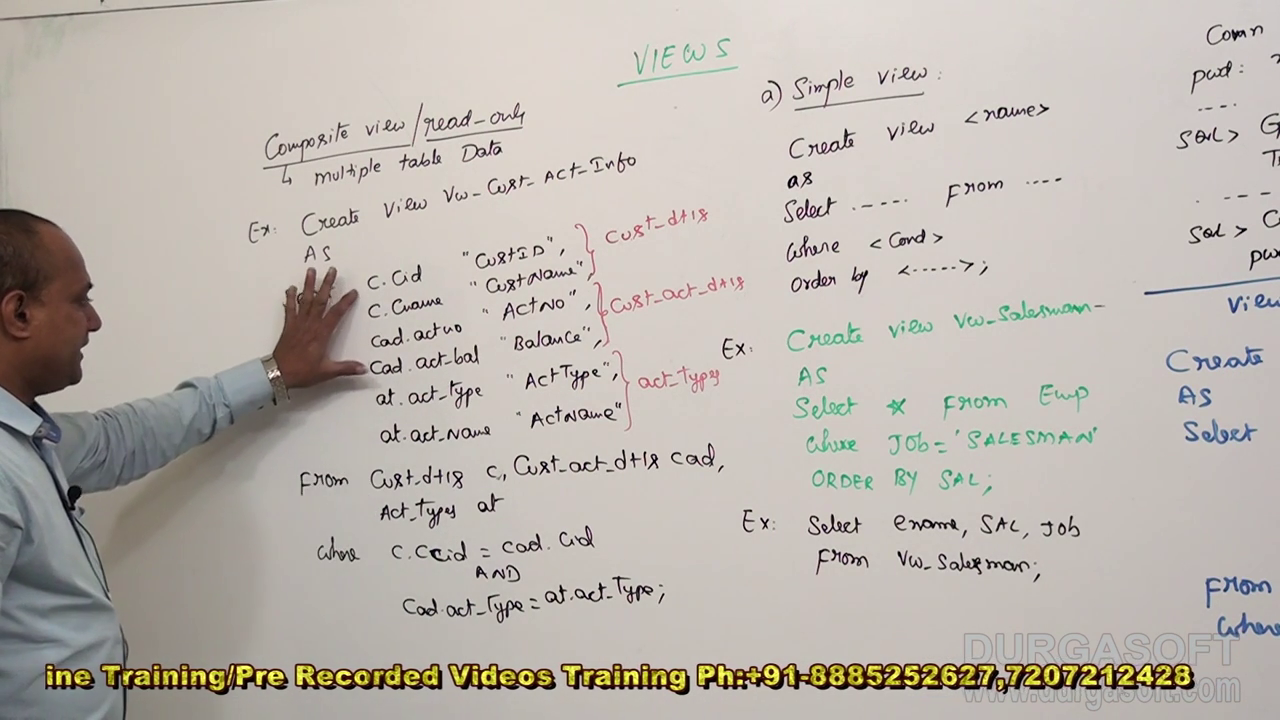 VIEWS
Composite view/read-only
↳ multiple table Data
Ex: Create View Vw-Cust-Act-Info
AS
C.Cid "CustID",
C.Cname "CustName",
} Cust_dtls
Cad.actno "ActNo",
Cad.act-bal "Balance",
} Cust_act_dtls
at.act_type "ActType",
at.act_Name "ActName"
} act_Types
From Cust_dtls c, Cust_act_dtls cad,
Act_Types at
where C.Ccid = Cad.Cid
AND
Cad.act_Type = at.act_Type;
a) Simple view:
Create view <name>
as
Select ..---. From ----
where <Cond>
order by <----->;
Ex: Create view Vw_Salesman-
AS
Select * From Emp
where JOb='SALESMAN'
ORDER BY SAL;
Ex: Select ename, SAL, Job
From Vw_Salesman;
Conn
pwd:
----
SQL> G
----
SQL> C
pw
View
Create
AS
Select
From
Where
DURGASOFT
www.durgasoft.com
ine Training/Pre Recorded Videos Training Ph:+91-8885252627,7207212428